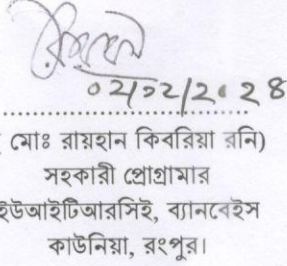 ০২/১২/২০২৪
(মোঃ রায়হান কিবরিয়া রনি)
সহকারী প্রোগ্রামার
ইউআইটিআরসিই, ব্যানবেইস
কাউনিয়া, রংপুর।